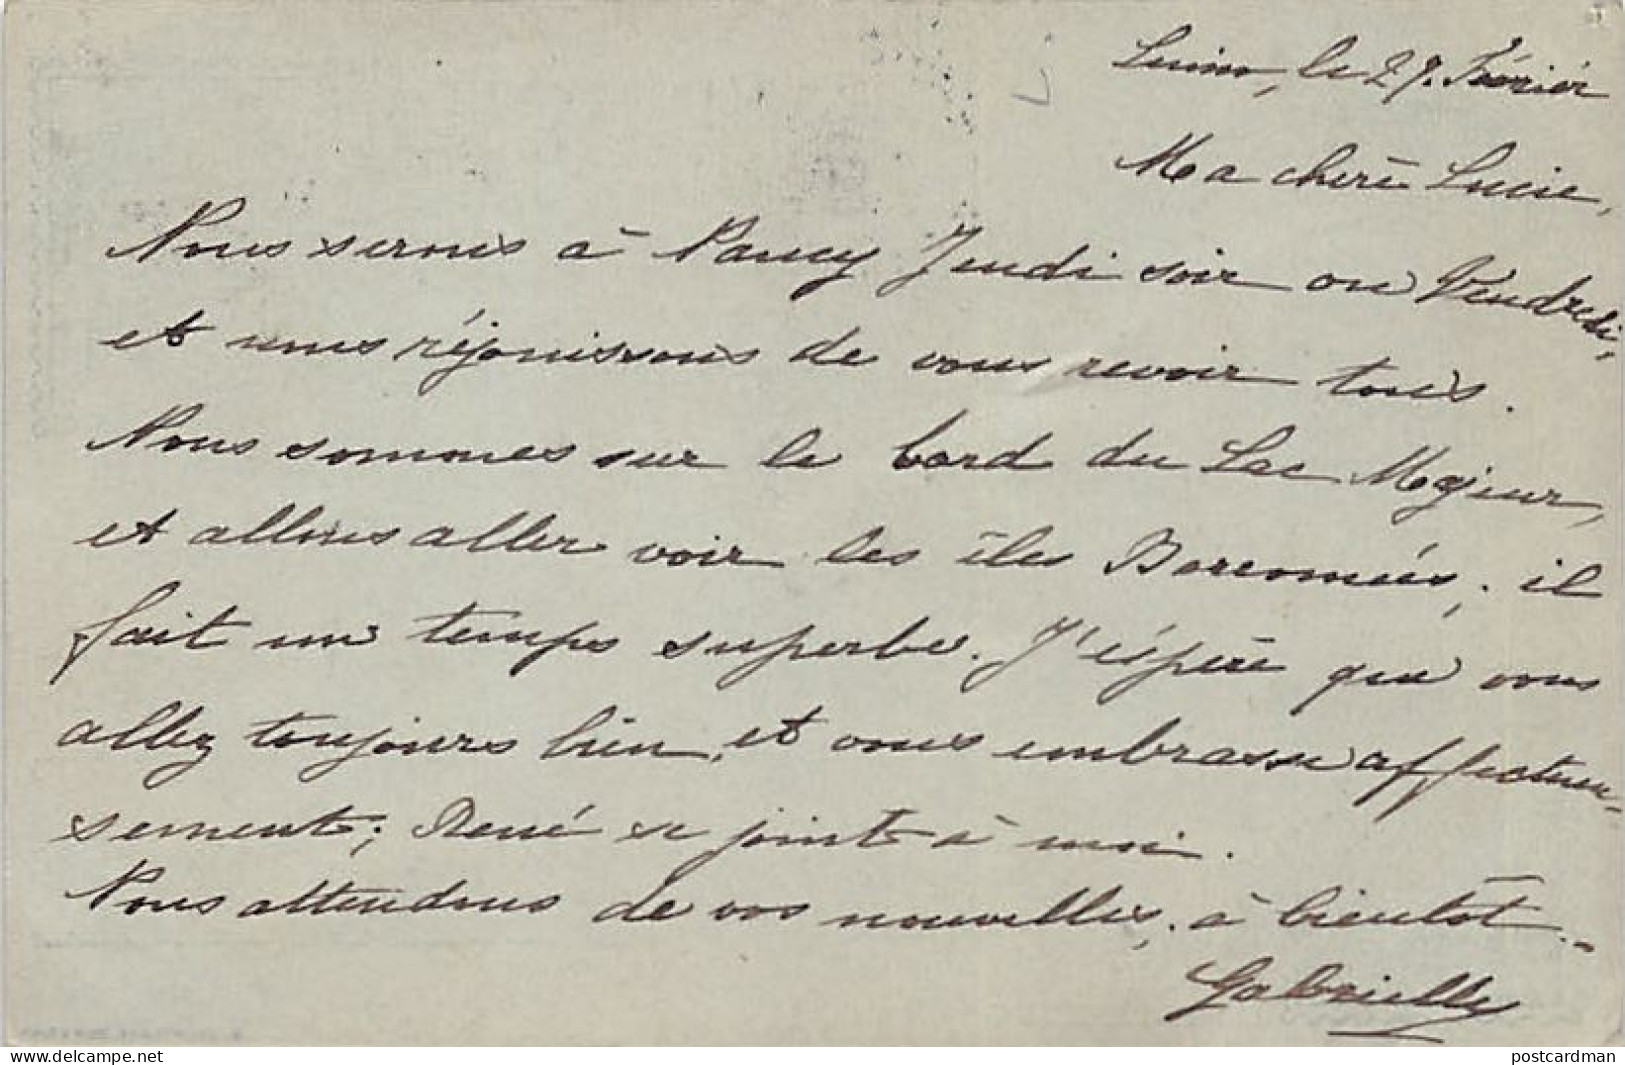 Luino, le 27. Février
Ma chère Lucie,
Nous serons à Nancy Jeudi soir ou Vendredi,
et nous réjouissons de vous revoir tous.
Nous sommes sur le bord du Lac Majeur,
et allons aller voir les îles Borromées; il
fait un temps superbe. J'éspère que vous
allez toujours bien, et vous embrasse affectueu-
sement; René se joint à moi.
Nous attendons de vos nouvelles; à bientôt.-
Gabrielle
postcardman